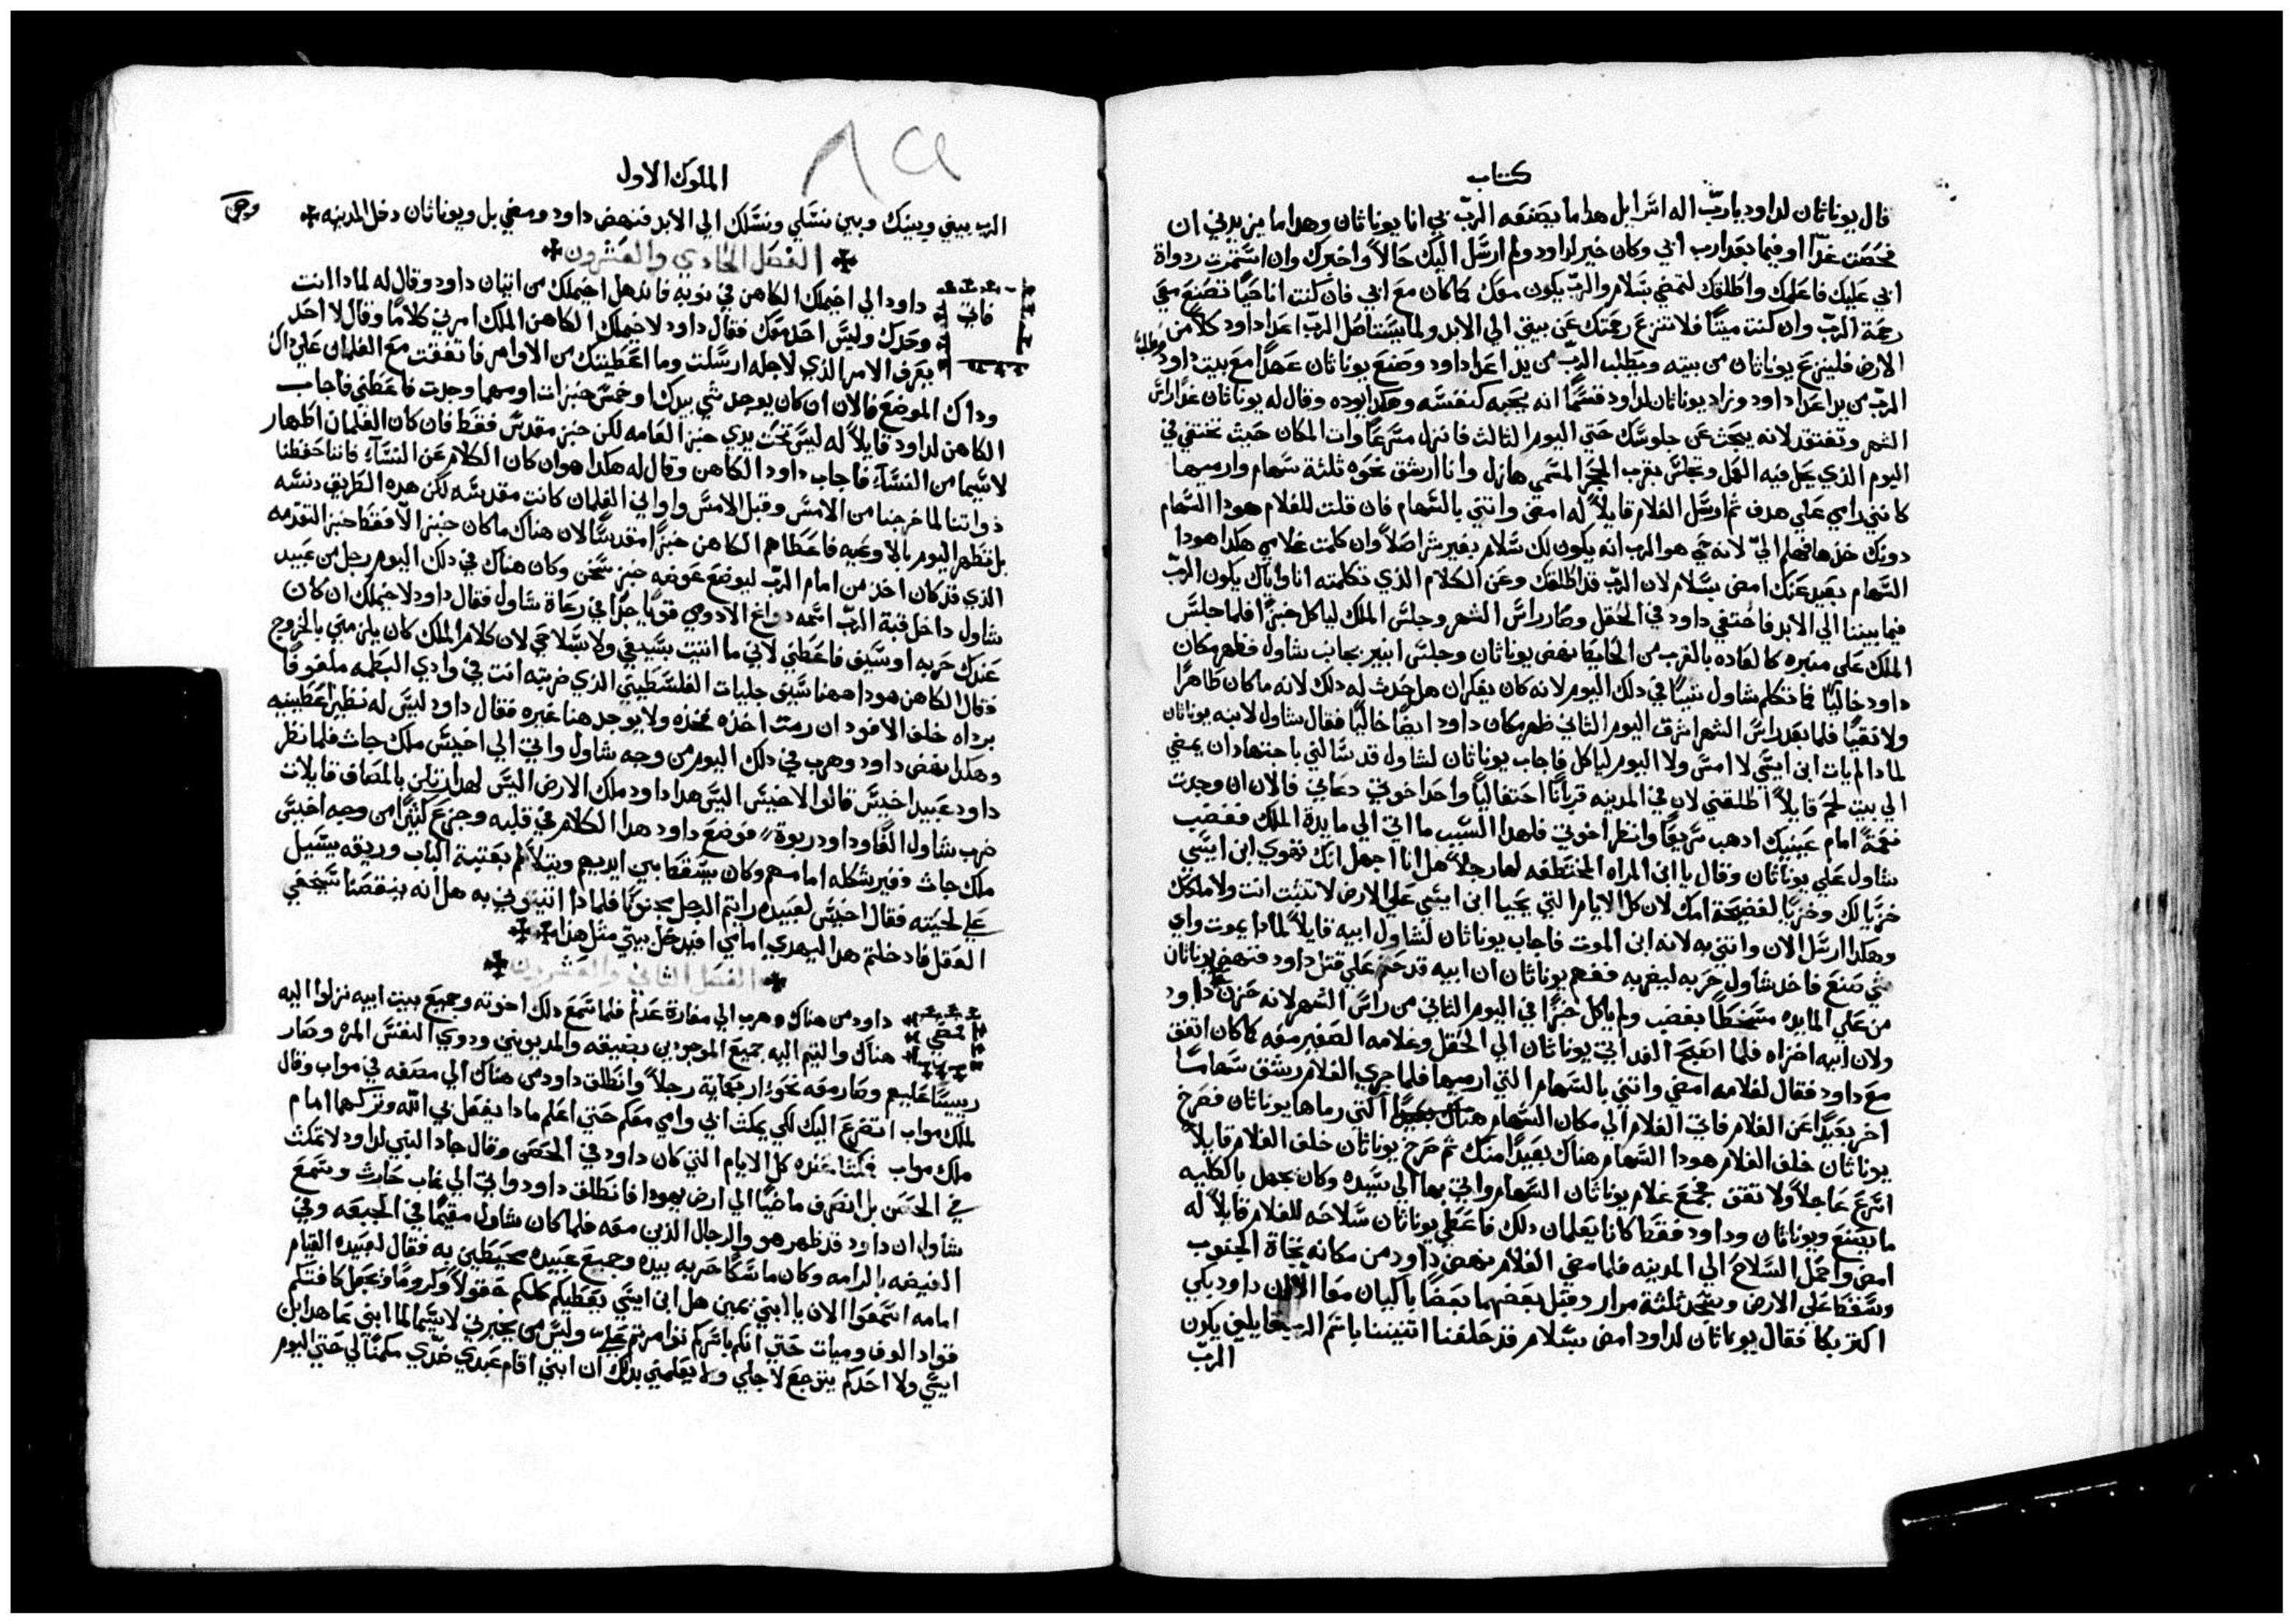 كتاب
قال يوناثان لداود يا ربّ اله اسرايل هدا ما يصنعه الربّ بي انا يوناثان وهدا ما يزيدني ان
فحصت غدًا او فيما بعد ارب ابي وكان خير لداود ولم ارسل اليك حالاً واخبرك وان استمرت رداوة
ابي عليك فاعلمك واطلقك لتمضي بسلام والربّ يكون معك كما كان مع ابي فان كنت انا حيًا تصنع معي
رحمة الربّ وان كنت ميتًا فلا تنزع رحمتك عن بيتي الي الابد ولما يستاصل الربّ اعدا داود كلاً من
الارض فلينزع يوناثان من بيته ويطلب الربّ من يد اعدا داود وصنع يوناثان عهدًا مع بيت داود وطلب
الربّ من يد اعدا داود وزاد يوناثان لداود قسمًا انه يحبه كنفسه وهكدا يوده وقال له يوناثان غدًا راس
الشهر وتفتقد لانه يبحث عن جلوسك حتي اليوم الثالث فانزل مسرعًا وات المكان حيث تختفي في
اليوم الذي يحل فيه العمل وتجلس بقرب الحجر المسمي هازل وانا ارشق نحوه ثلثة سهام وارميها
كانني رامي علي هدف ثم ارسل الغلام قايلاً له امضي واتني بالسهام فان قلت للغلام هودا السهام
دونك خدها فهلم اليّ لانه حي هو الرب انه يكون لك سلام بغير شر اصلاً وان كلمت غلامي هكدا هودا
السهام بعيد عنك امض بسلام لان الربّ قد اطلقك وعن الكلام الذي تكلمته انا واياك يكون الربّ
فيما بيننا الي الابد فاختفي داود في الحقل وصار راس الشهر وجلس الملك لياكل خبزًا فلما جلس
الملك علي منبره كالعاده بالقرب من الحايط نهض يوناثان وجلس ابنير بجانب شاول فظهر مكان
داود خاليًا فما تكلم شاول شيئًا في دلك اليوم لانه كان يفكر ان هل حدث له دلك لانه ما كان طاهرًا
ولا نقيًا فلما بعد راس الشهر اشرق اليوم الثاني ظهر مكان داود ايضًا خاليًا فقال شاول لابنه يوناثان
لمادا لم يات ابن ايسي لا امس ولا اليوم لياكل فاجاب يوناثان لشاول قد سالني باجتهاد ان يمضي
الي بيت لحم قايلاً اطلقني لان في المدينه قربانًا احتفاليًا واحد اخوتي دعاني فالان ان وجدت
نعمةً امام عينيك ادهب سريعًا وانظر اخوتي فلهدا السبب ما اتي الي مايدة الملك فغضب
شاول علي يوناثان وقال يا ابن المراه المختطفه لها رجلاً هل انا اجهل انك تهوي ابن ايسي
خزيًا لك وخزيًا لفضيحة امك لان كل الايام التي يحيا ابن ايسي علي الارض لا تثبت انت ولا ملكك
وهكدا ارسل الان واتني به لانه ابن الموت فاجاب يوناثان لشاول ابيه قايلاً لمادا يموت واي
شي صنع فاخد شاول حربه ليضربه ففهم يوناثان ان ابيه قد حتم علي قتل داود فنهض يوناثان
من علي المايده متسخطًا بغضب ولم ياكل خبزًا في اليوم الثاني من راس الشهر لانه حزن علي داود
ولان ابيه اخزاه فلما اصبح الغد اتي يوناثان الي الحقل وغلامه الصغير معه كما كان اتفق
مع داود فقال لغلامه امضي واتني بالسهام التي ارميها فلما جري الغلام رشق سهامًا
اخر بعيدًا عن الغلام فاتي الغلام الي مكان السهام التي رماها يوناثان فصرخ
يوناثان خلف الغلام هودا السهام هناك بعيدًا منك ثم صرخ يوناثان خلف الغلام قايلاً
اسرع عاجلاً ولا تقف فجمع غلام يوناثان السهام واتي بها الي سيده وكان يجهل بالكليه
ما يصنع ويوناثان وداود فقط كانا يعلمان دلك فاعطي يوناثان سلاحه للغلام قايلاً له
امض واحمل السلاح الي المدينه فلما مضي الغلام نهض داود من مكانه تجاه الجنوب
وسقط علي الارض وسجد ثلثة مرار وقبل بعضهما بعضًا باكيان معًا الا ان داود بكي
اكثر بكا فقال يوناثان لداود امض بسلام قد حلفنا اثنيننا باسم الرب قايلين يكون
الربّ
الملوك الاول
٨٩
الرب بيني وبينك وبين نسلي ونسلك الي الابد فنهض داود ومضي بل ويوناثان دخل المدينه
الفصل الحادي والعشرون
فاتي داود الي اخيملك الكاهن في نوبه فاندهل اخيملك من اتيان داود وقال له لمادا انت
وحدك وليس احد معك فقال داود لاخيملك الكاهن الملك امرني كلامًا وقال لا احد
يعرف الامر الذي لاجله ارسلت وما اعطيتك من الاوامر فاتفقت مع الغلمان علي داك
وداك الموضع فالان ان كان يوجد شي بيدك او خمس خبزات او مهما وجدت فاعطني فاجاب
الكاهن لداود قايلاً له ليس تحت يدي خبز العامه لكن خبز مقدس فقط فان كان الغلمان اطهار
لاسيما من النساء فاجاب داود الكاهن وقال له هكدا هو ان كان الكلام عن النساء فاننا حفظنا
ذواتنا لما خرجنا من الامس وقبل الامس واواني الغلمان كانت مقدسه لكن هده الطريق دنسه
بل تطهر اليوم بالاوعيه فاعطاهم الكاهن خبزًا مقدسًا لان هناك ما كان خبز الا فقط خبز التقدمه
الذي قد كان اخد من امام الربّ ليوضع عوضه خبز سخن وكان هناك في دلك اليوم رجل من عبيد
شاول داخل قبة الربّ اسمه دواغ الادومي قويًا جدًا في رعاة شاول فقال داود لاخيملك ان كان
عندك حربه او سيف فاعطني لاني ما اتيت بسيفي ولا سلاحي لان كلام الملك كان يلزمني بالخروج
فقال الكاهن هودا ههنا سيف جليات الفلسطيني الذي ضربته انت في وادي البطمه ملفوفًا
برداه خلف الافود ان رمت اخده فخده ولا يوجد هنا غيره فقال داود ليس له نظير اعطينيه
وهكدا نهض داود وهرب في دلك اليوم من وجه شاول واتي الي اخيس ملك جاث فلما نظر
داود عبيد اخيس قالوا لاخيس اليس هدا داود ملك الارض اليس لهدا رتلن بالمصاف قايلات
ضرب شاول الفًا وداود ربوة فوضع داود هدا الكلام في قلبه وجزع كثيرًا من وجه اخيس
ملك جاث وغير شكله امامهم وكان يسقط بين ايديهم ويتلاطم بعتبة الباب وريقه يسيل
علي لحيته فقال اخيس لعبيده رايتم الرجل مجنونًا فلمادا اتيتوني به هل انه ينقصنا سخيفي
العقل فادخلتم هدا ليهدي امامي افيدخل بيتي مثل هذا
الفصل الثاني والعشرون
فمضي داود من هناك وهرب الي مغارة عدلم فلما سمع دلك اخوته وجميع بيت ابيه نزلوا اليه
هناك والتيم اليه جميع الموجودين بضيقه والمديونين ودوي النفس المره وصار
رييسًا عليهم وصار معه نحو اربعماية رجلاً وانطلق داود من هناك الي مصفه في مواب وقال
لملك مواب اتضرع اليك لكي يمكث ابي وامي معكم حتي اعلم مادا يفعل بي الله وتركهما امام
ملك مواب فمكثا عنده كل الايام التي كان داود في الحصن وقال جاد النبي لداود لا تمكث
في الحصن بل انصرف ماضيًا الي ارض يهودا فانطلق داود واتي الي غاب حارث وسمع
شاول ان داود قد ظهر هو والرجال الذين معه فلما كان شاول مقيمًا في الجبعه وفي
الغيضه بالرامه وكان ماسكًا حربه بيده وجميع عبيده محيطين به فقال لعبيده القيام
امامه اسمعوا الان يا ابني يمين هل ابن ايسي يعطيكم كلكم حقولاً وكرومًا ويجعل كافتكم
قواد الوف وميات حتي انكم باسركم توامرتم عليّ وليس من يخبرني لاسيما لما ابني عاهد ابن
ايسي ولا احدكم يتوجع لاجلي ولا يعلمني بدلك ان ابني اقام عبدي ضدي مكمنًا لي حتي اليوم